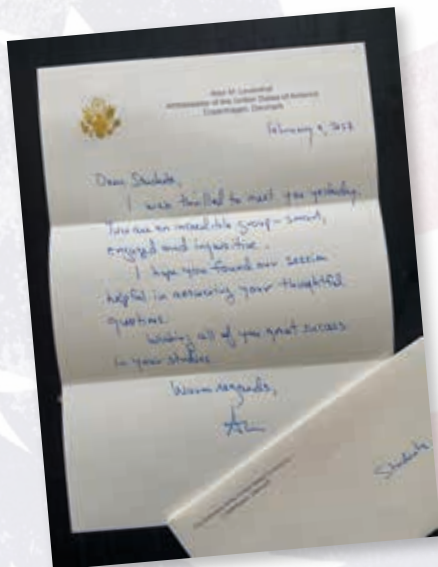 Alan M. Leventhal
Ambassador of the United States of America
Copenhagen, Denmark
February 9,
Dear Students,
I was thrilled to meet you yesterday.
You are an incredible group - smart,
engaged and inquisitive.
I hope you found our session
helpful in answering your thoughtful
questions.
Wishing all of you great success
in your studies
Warm regards,
Students